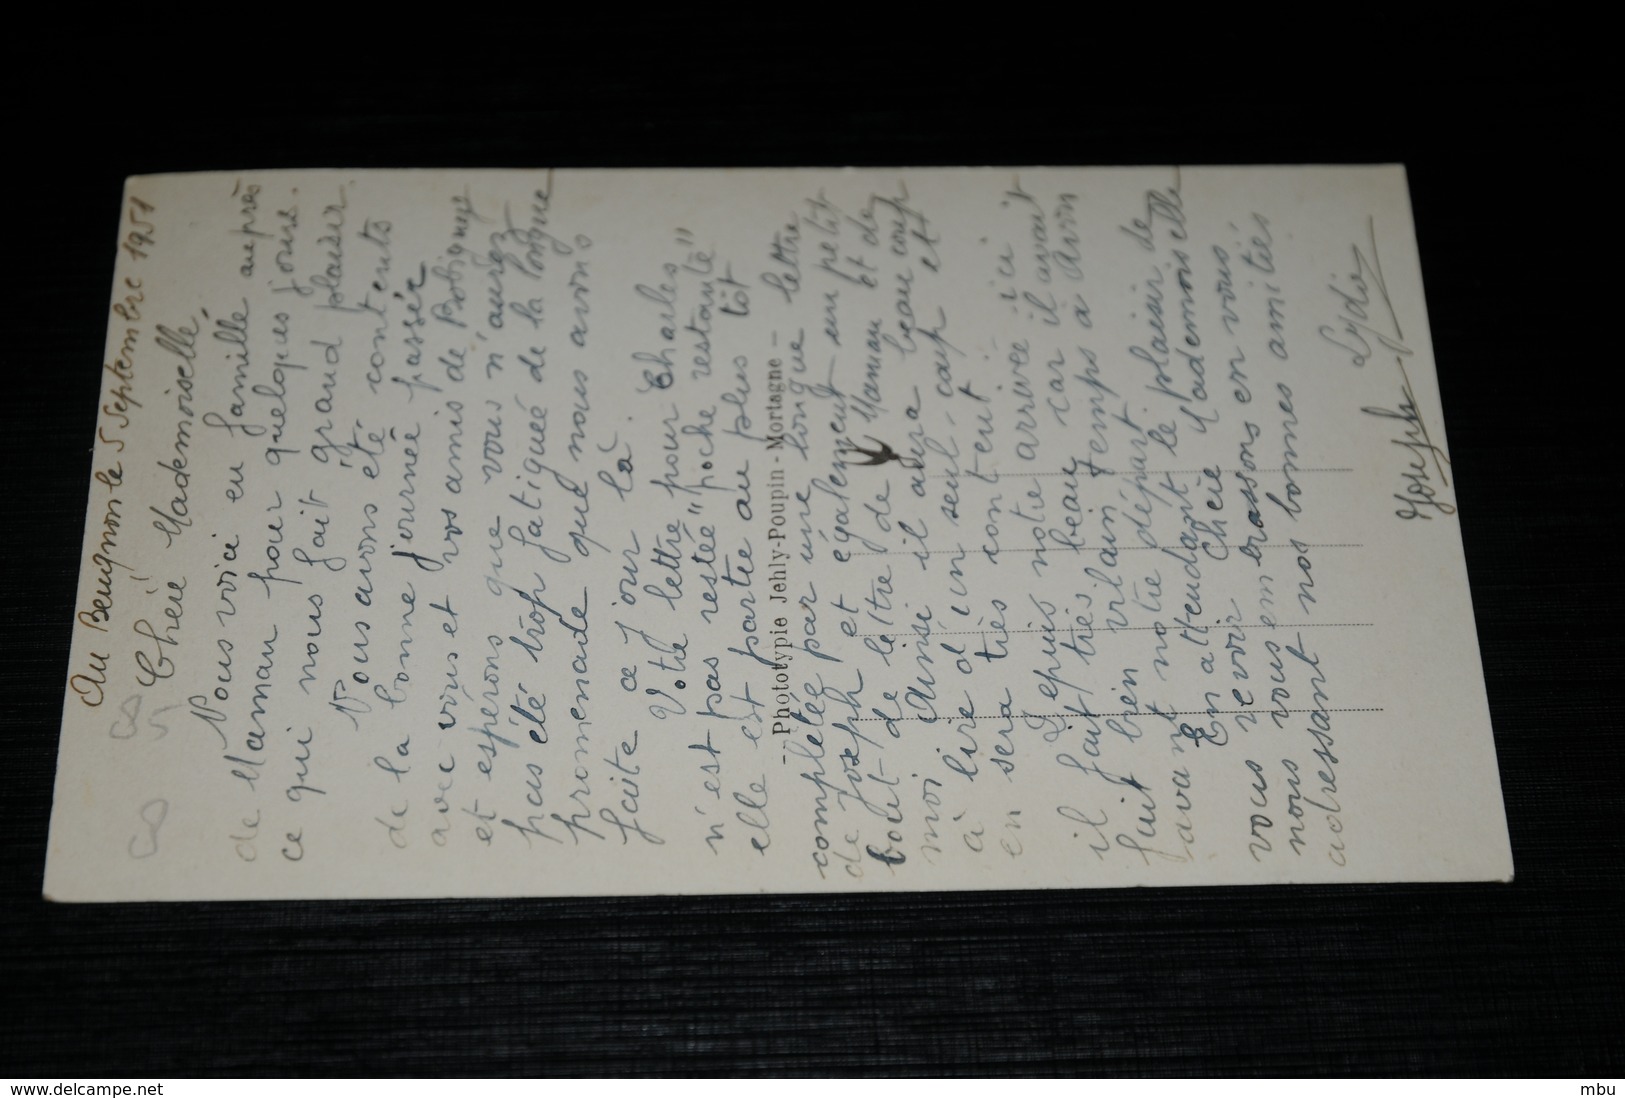 Au Beugnon le 5 Septembre 1951
Chère Mademoiselle,
Nous voici en famille auprès
de Maman pour quelques jours.
ce qui nous fait grand plaisir.
Nous avons été contents
de la bonne journée passée
avec vous et vos amis de Bobigny
et espérons que vous n'aurez
pas été trop fatiguée de la longue
promenade que nous avons
faite ce jour là.
Votre lettre pour Charles
n'est pas restée "poche restante"
elle est partie au plus tôt
- Phototypie Jehly-Poupin - Mortagne -
complétée par une longue lettre
de Joseph et également un petit
bout de lettre de Maman et de
moi Ainsi il aura beaucoup
à lire d'un seul coup et
en sera très content.
Depuis notre arrivée ici
il fait très beau car il avait
fait bien vilain temps à Avon
avant notre départ
En attendant le plaisir de
vous revoir Chère Mademoiselle
nous vous embrassons en vous
adressant nos bonnes amitiés
Lydie
Joseph
www.delcampe.net
mbu